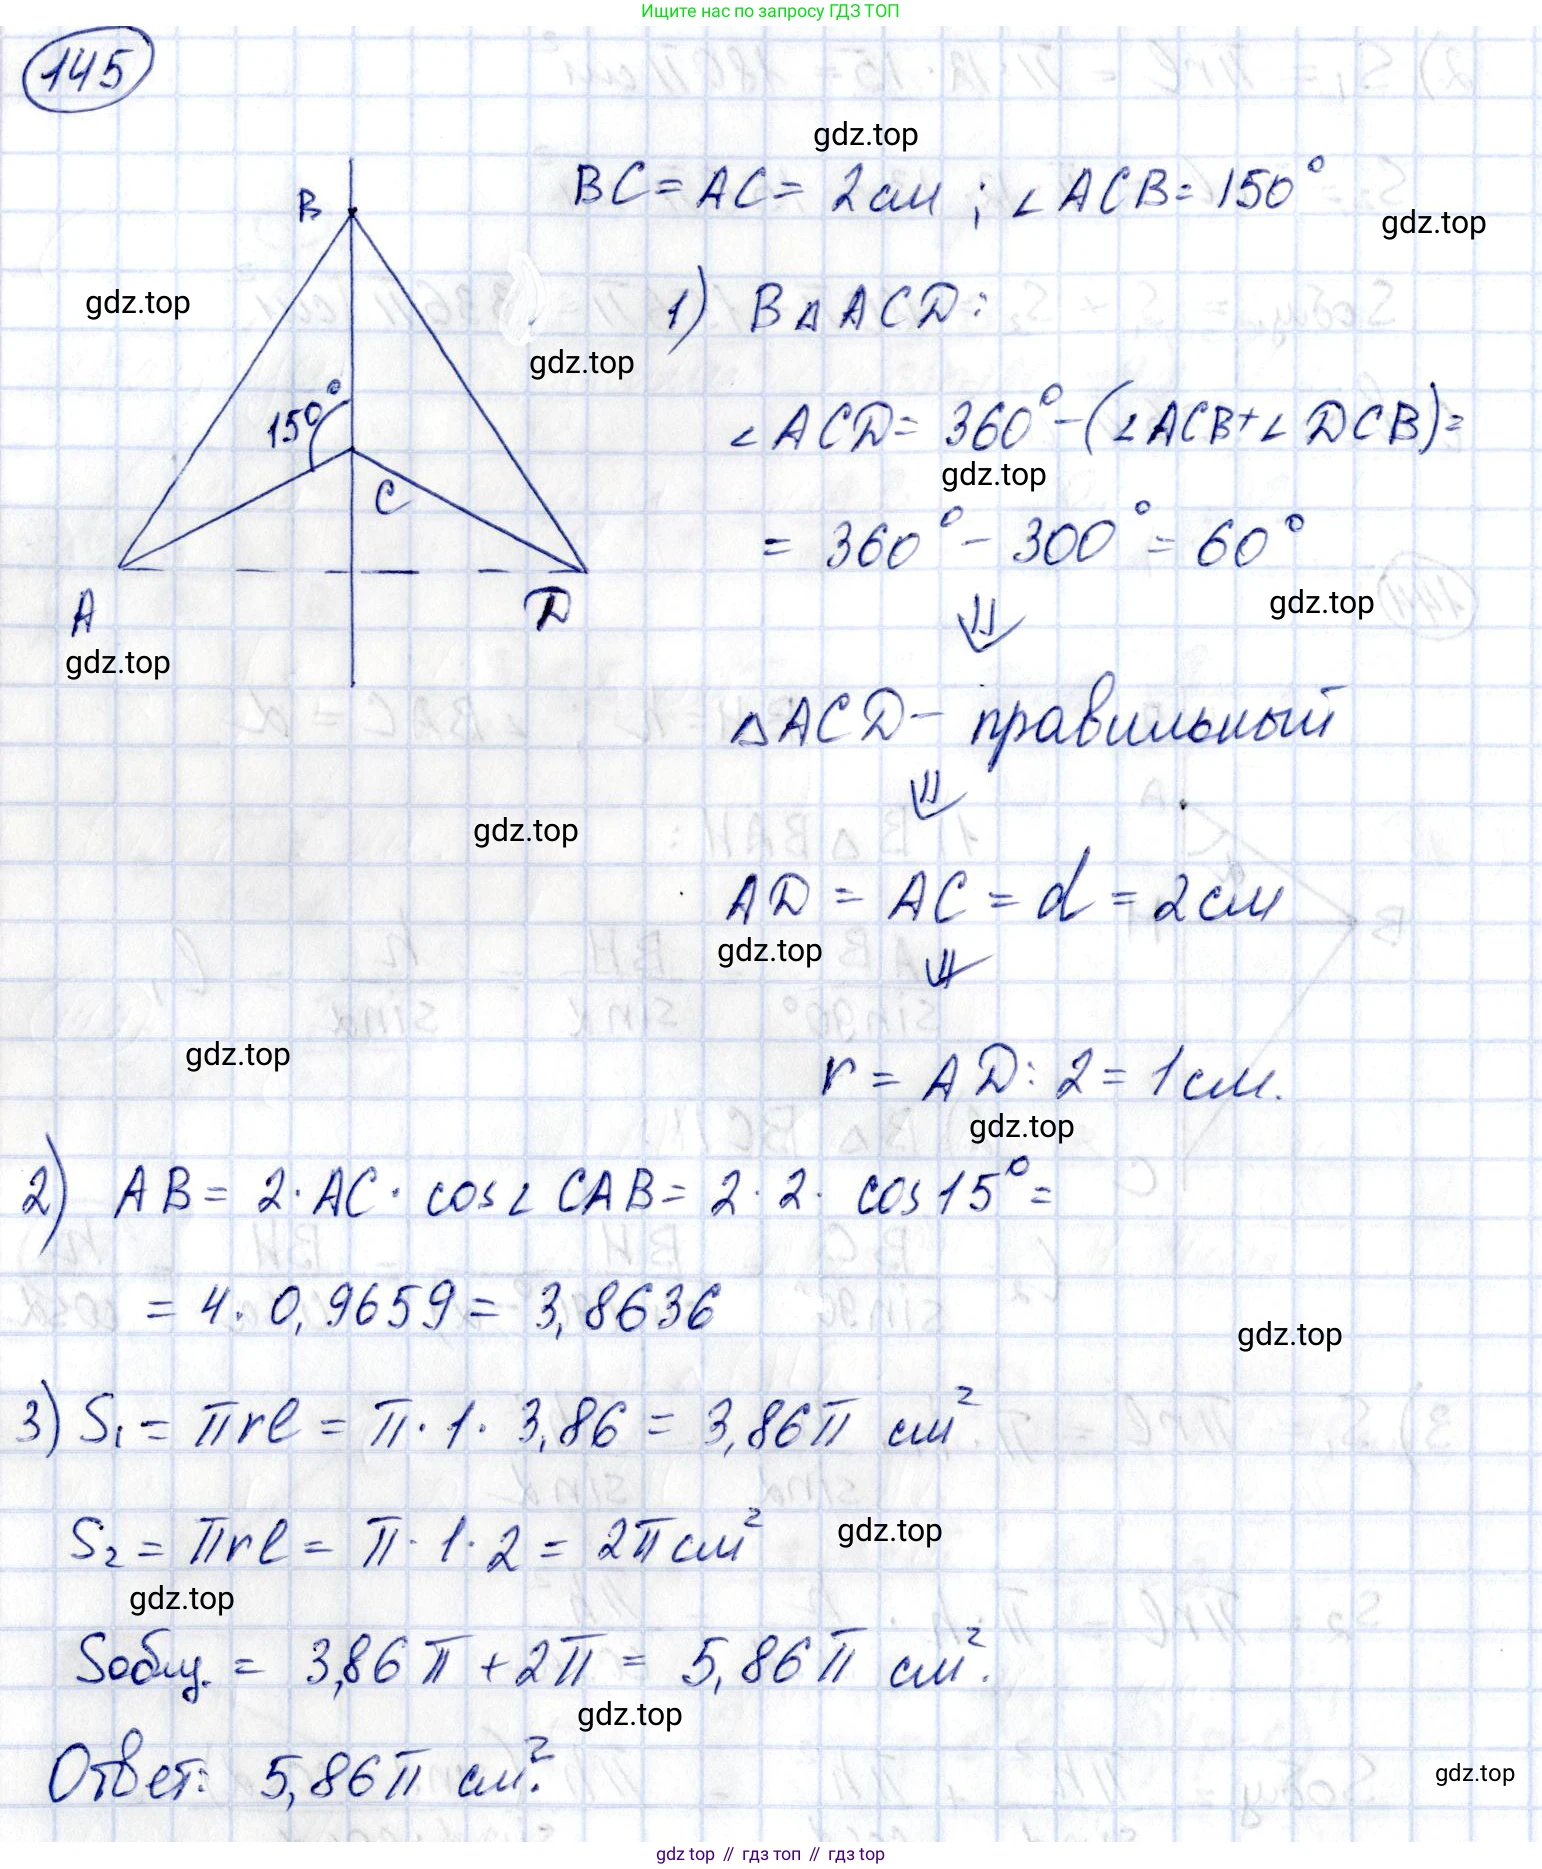 Ищите нас по запросу ГДЗ ТОП
145
gdz.top
BC = AC = 2 см ; ∠ACB = 150°
gdz.top
B
gdz.top
1) В △ ACD:
gdz.top
150°
∠ACD = 360° - (∠ACB + ∠DCB) =
gdz.top
C
= 360° - 300° = 60°
A
D
gdz.top
gdz.top
⇓
△ACD - правильный
⇓
gdz.top
AD = AC = d = 2 см
gdz.top
⇓
gdz.top
r = AD : 2 = 1 см.
gdz.top
2) AB = 2 · AC · cos∠CAB = 2 · 2 · cos15° =
= 4 · 0,9659 = 3,8636
gdz.top
3) S₁ = πrl = π · 1 · 3,86 = 3,86π см²
S₂ = πrl = π · 1 · 2 = 2π см²
gdz.top
gdz.top
Sобщ. = 3,86π + 2π = 5,86π см².
gdz.top
Ответ: 5,86π см².
gdz.top
gdz top // гдз топ // гдз top